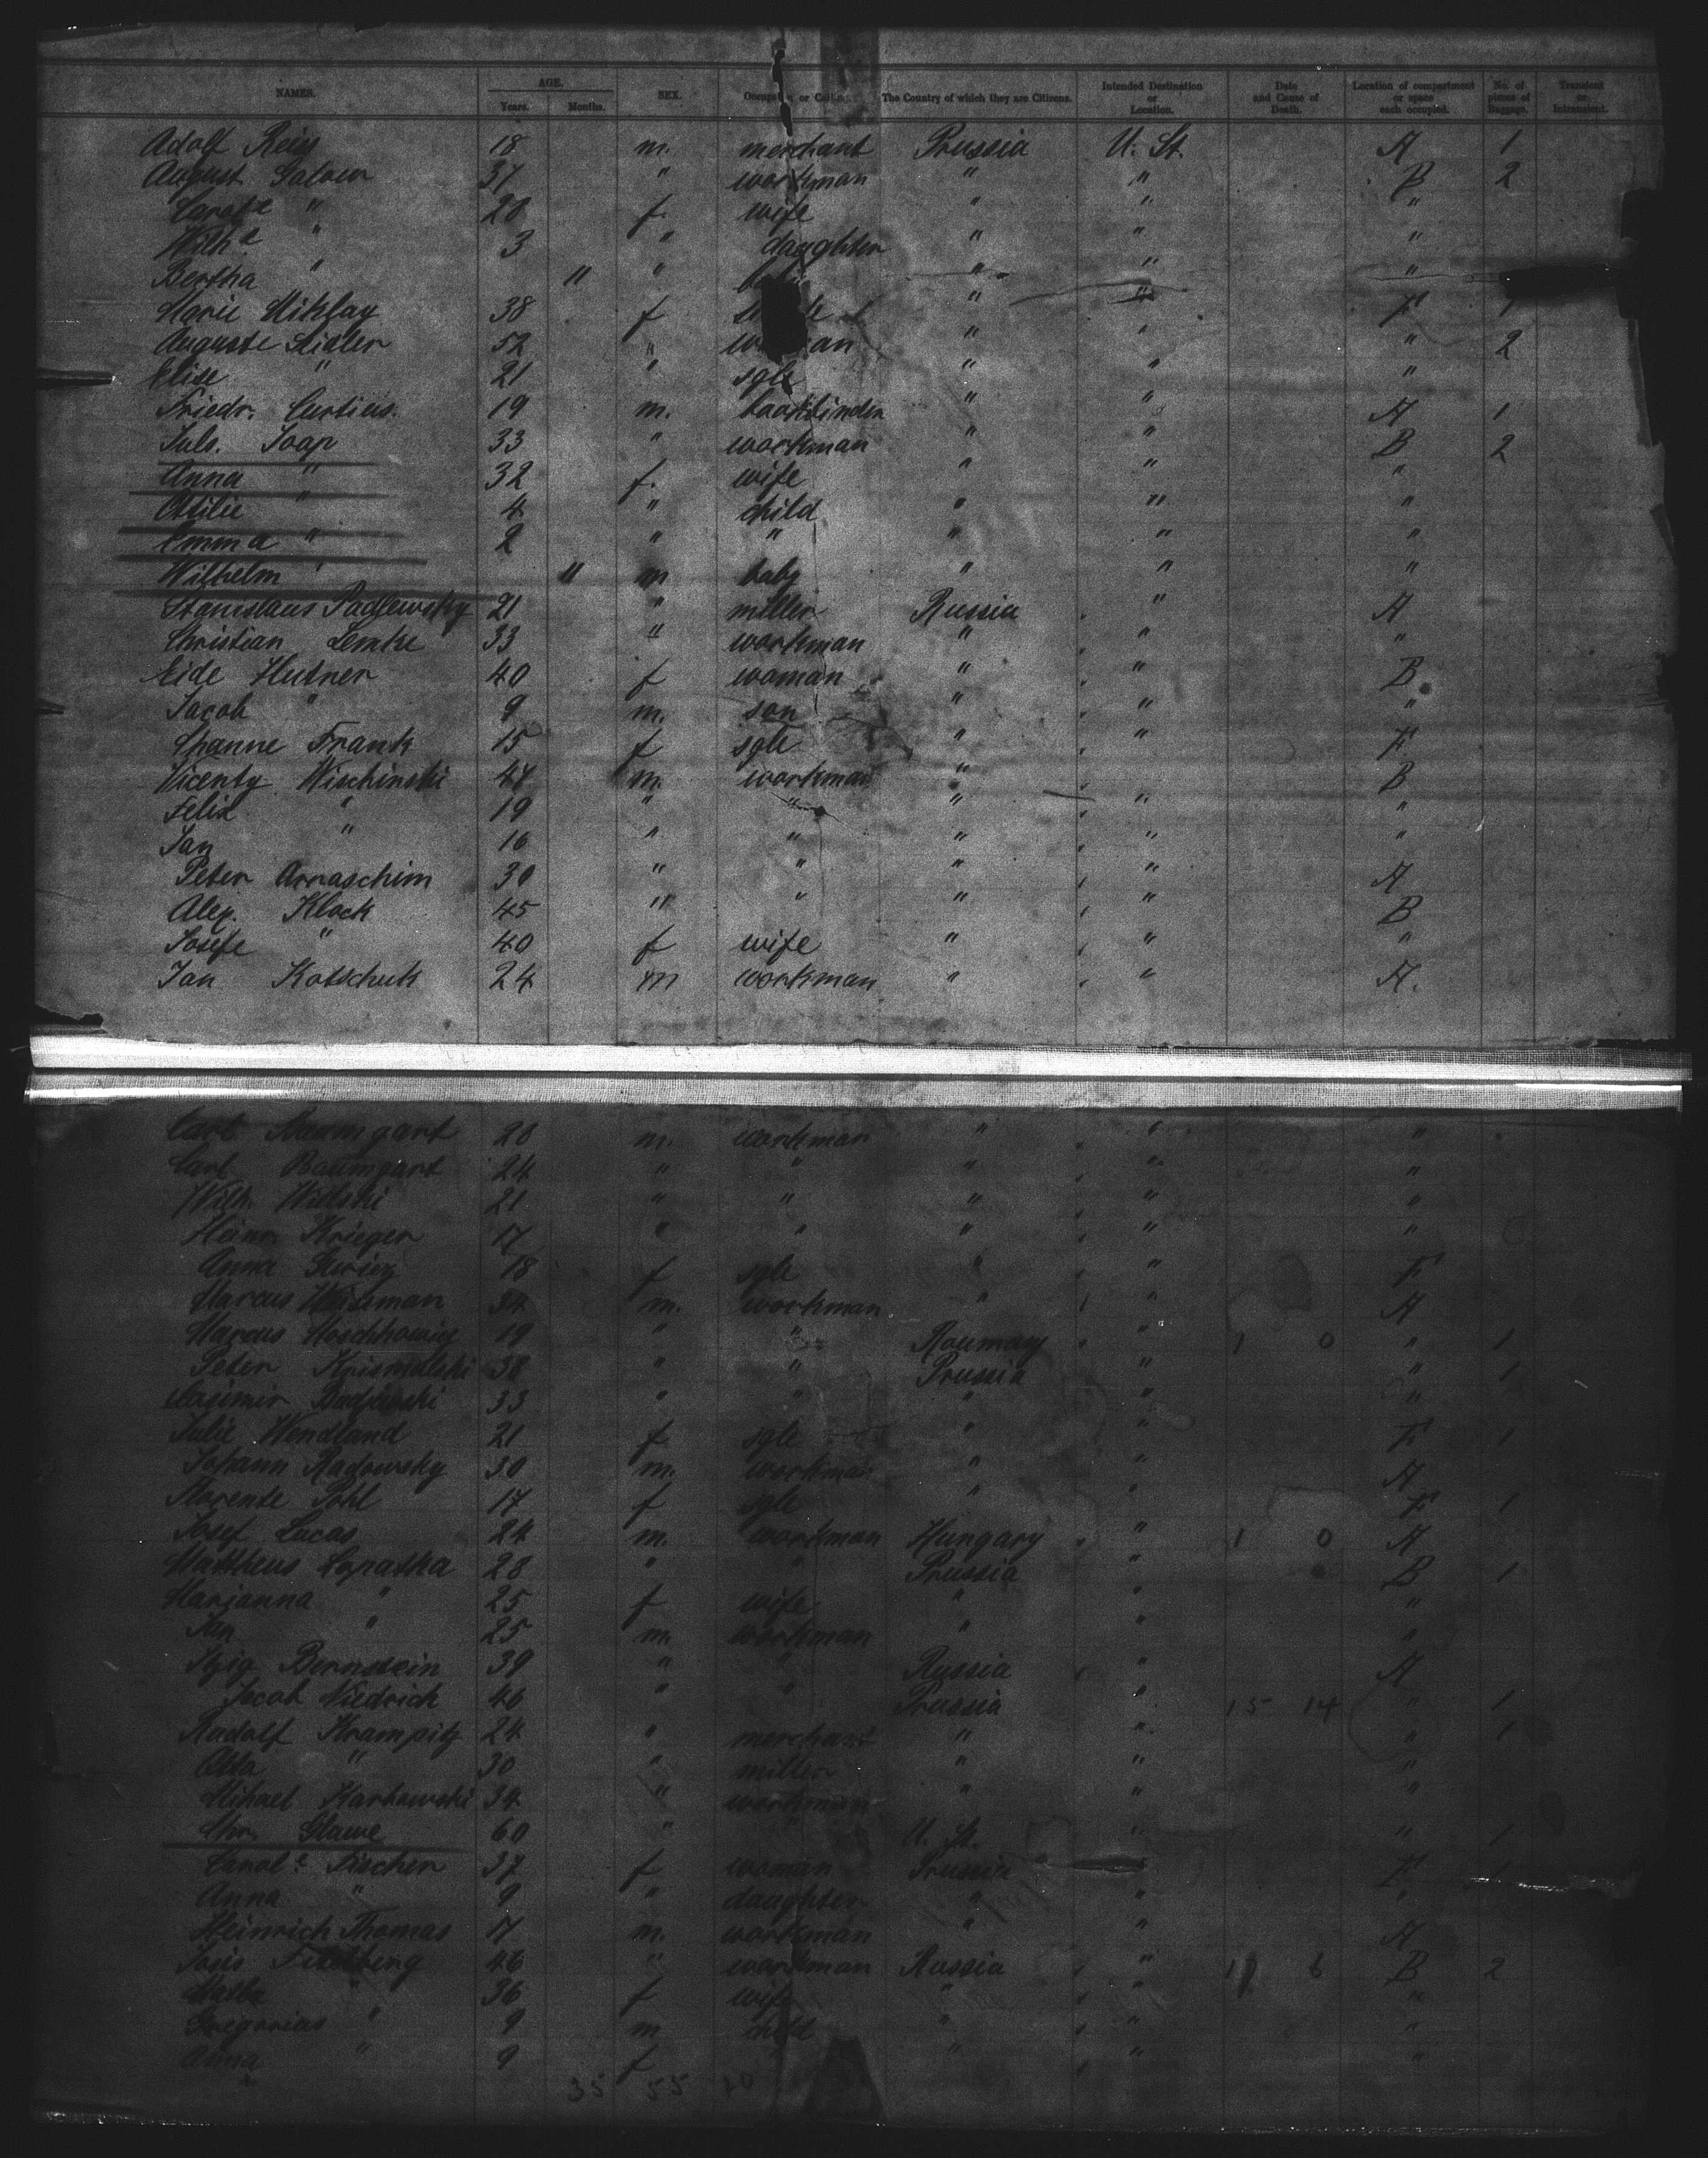 NAMES. AGE. Years. Months. SEX. Occupation or Calling. The Country of which they are Citizens. Intended Destination or Location. Date and Cause of Death. Location of compartment or space each occupied. No. of pieces of Baggage. Transient or Intransient.
Adolf Reis 18 m. merchant Prussia U. St. A 1
August 37 " workman " " B 2
Carol.e " 28 f. wife " " "
Wilh.e " 3 " daughter " " "
Bertha " 11 " " " "
Marie Miklay 38 f " " F 1
Auguste Sidler 52 " " " " 2
Elise " 21 " sgle " " "
Friedr. Curtius. 19 m. bookbinder " " A 1
Juls. Soap 33 " workman " " B 2
Anna " 32 f. wife " " "
Ottilie " 4 " child " " "
Emma " 2 " " " " "
Wilhelm " 11 m baby " " "
Stanislaus Padlewsky 21 " miller Russia " A
Christian Lemke 33 " workman " " "
Eide Hutner 40 f woman " " B
Jacob " 9 m. son " " "
Channe Frank 15 f sgle " " F
Vicenty Wischinski 47 m. workman " " B
Felix " 19 " " " " "
Jan " 16 " " " " "
Peter Arnaschim 30 " " " " A
Alex. Klock 45 " " " " B
Josefe " 40 f wife " " "
Jan Kotschuk 24 m workman " " A.
Carl Baumgart 28 m. workman " " "
Carl Baumgart 24 " " " " "
Wilh. 21 " " " " "
Heinr. Krieger 17 " " " " "
Anna 18 f sgle " " F
Marcus 34 m. workman " " A
Marcus 19 " " Roumany " 1 0 " 1
Peter 38 " " Prussia " " 1
Casimir 33 " " " " "
Julie Wendland 21 f sgle " " F 1
Johann Radowsky 30 m. workman " " A
Florente Pohl 17 f sgle " " F 1
Josef Lucas 24 m. workman Hungary " 1 0 A
Mattheus Lopatka 28 " " Prussia " B 1
Marianna " 25 f wife " " "
Jan " 25 m. workman " " "
Bernstein 39 " " Russia " A
Jacob Niedrich 46 " " Prussia " 15 14 " 1
Rudolf Krampitz 24 " merchant " " " 1
Otto " 30 " miller " " "
Mihael Karkowski 34 " workman " " "
Chr. Glawe 60 " " U. St. " " 1
Carol.e Fischer 37 f woman Prussia " F 1
Anna " 9 " daughter " " "
Heinrich Thomas 17 m. workman " " A
46 " workman Russia " 17 6 B 2
" 36 f wife " " "
Gregorius " 9 m child " " "
Anna " 9 f " " "
35 55 10